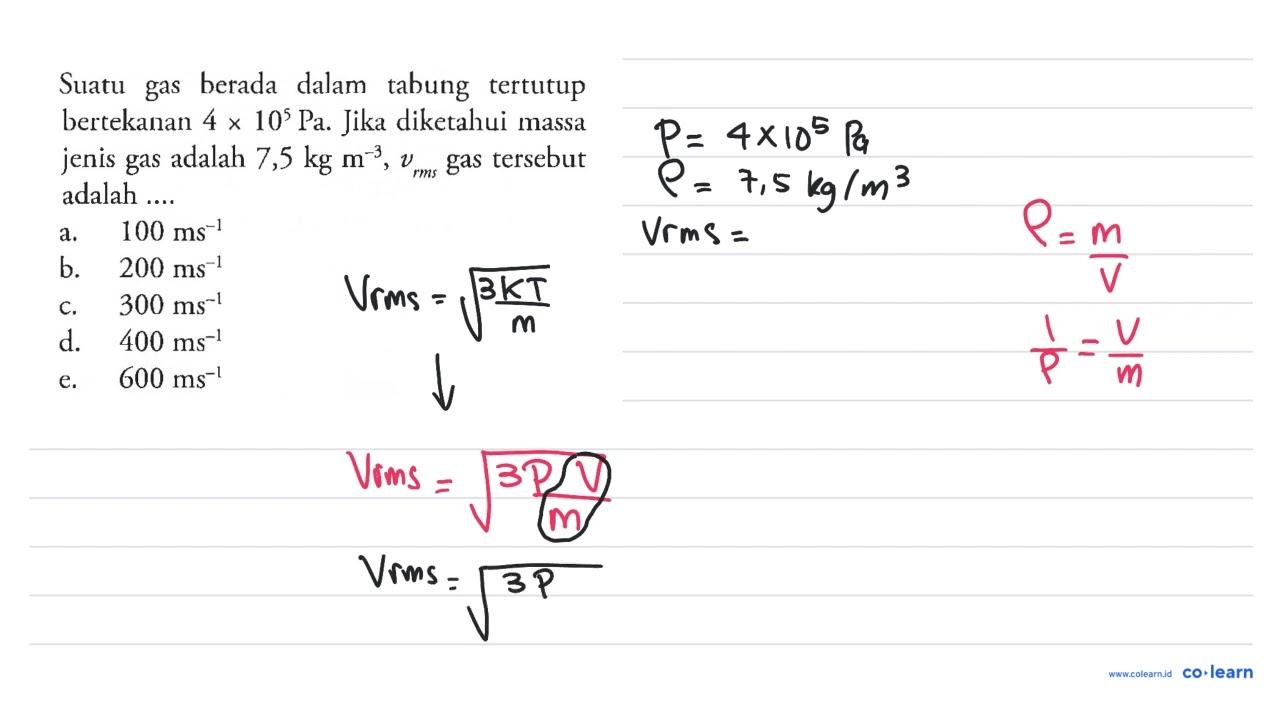 Suatu gas berada dalam tabung tertutup
bertekanan 4 × 10⁵ Pa. Jika diketahui massa
jenis gas adalah 7,5 kg m⁻³, v_rms gas tersebut
adalah ....
a. 100 ms⁻¹
b. 200 ms⁻¹
c. 300 ms⁻¹
d. 400 ms⁻¹
e. 600 ms⁻¹
Vrms = √(3KT/m)
↓
Vrms = √(3P V/m)
Vrms = √(3P
P = 4×10⁵ Pa
ρ = 7,5 kg/m³
Vrms =
ρ = m/V
1/ρ = V/m
www.colearn.id co·learn